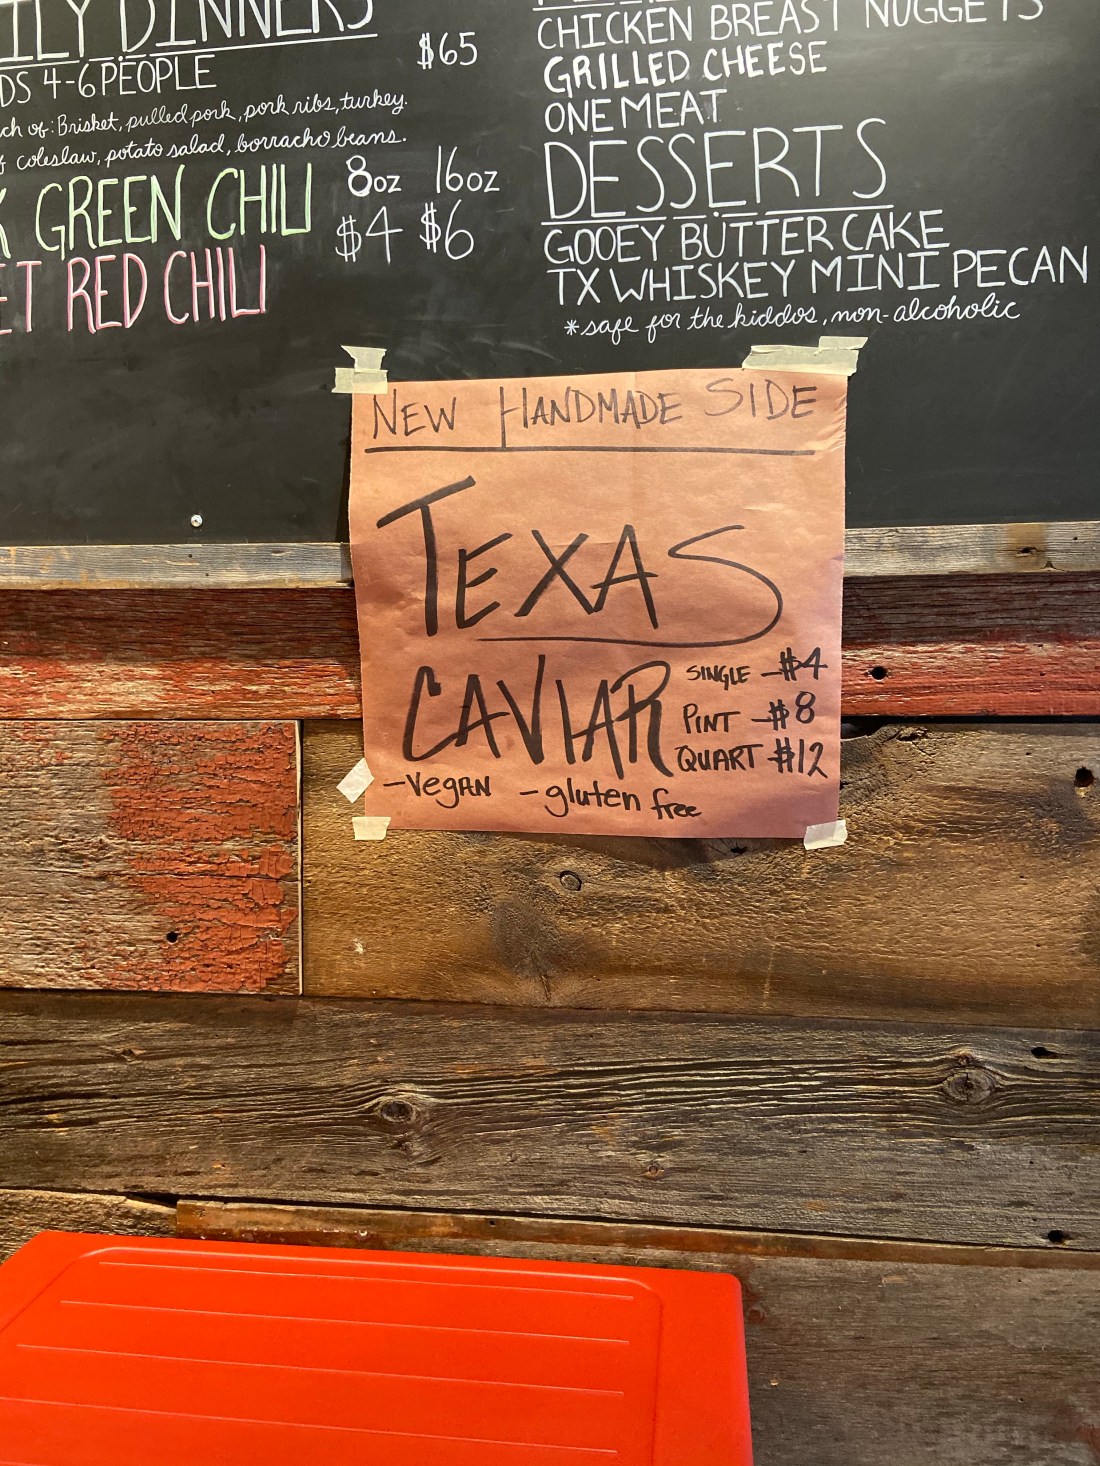 DINNERS
4-6 PEOPLE
$65
of: Brisket, pulled pork, pork ribs, turkey.
coleslaw, potato salad, borracho beans.
8oz 16oz
GREEN CHILI
$4 $6
RED CHILI
CHICKEN BREAST NUGGETS
GRILLED CHEESE
ONE MEAT
DESSERTS
GOOEY BUTTER CAKE
TX WHISKEY MINI PECAN
*safe for the kiddos, non-alcoholic
NEW HANDMADE SIDE
TEXAS
CAVIAR
SINGLE - $4
PINT - $8
QUART $12
- Vegan - gluten free